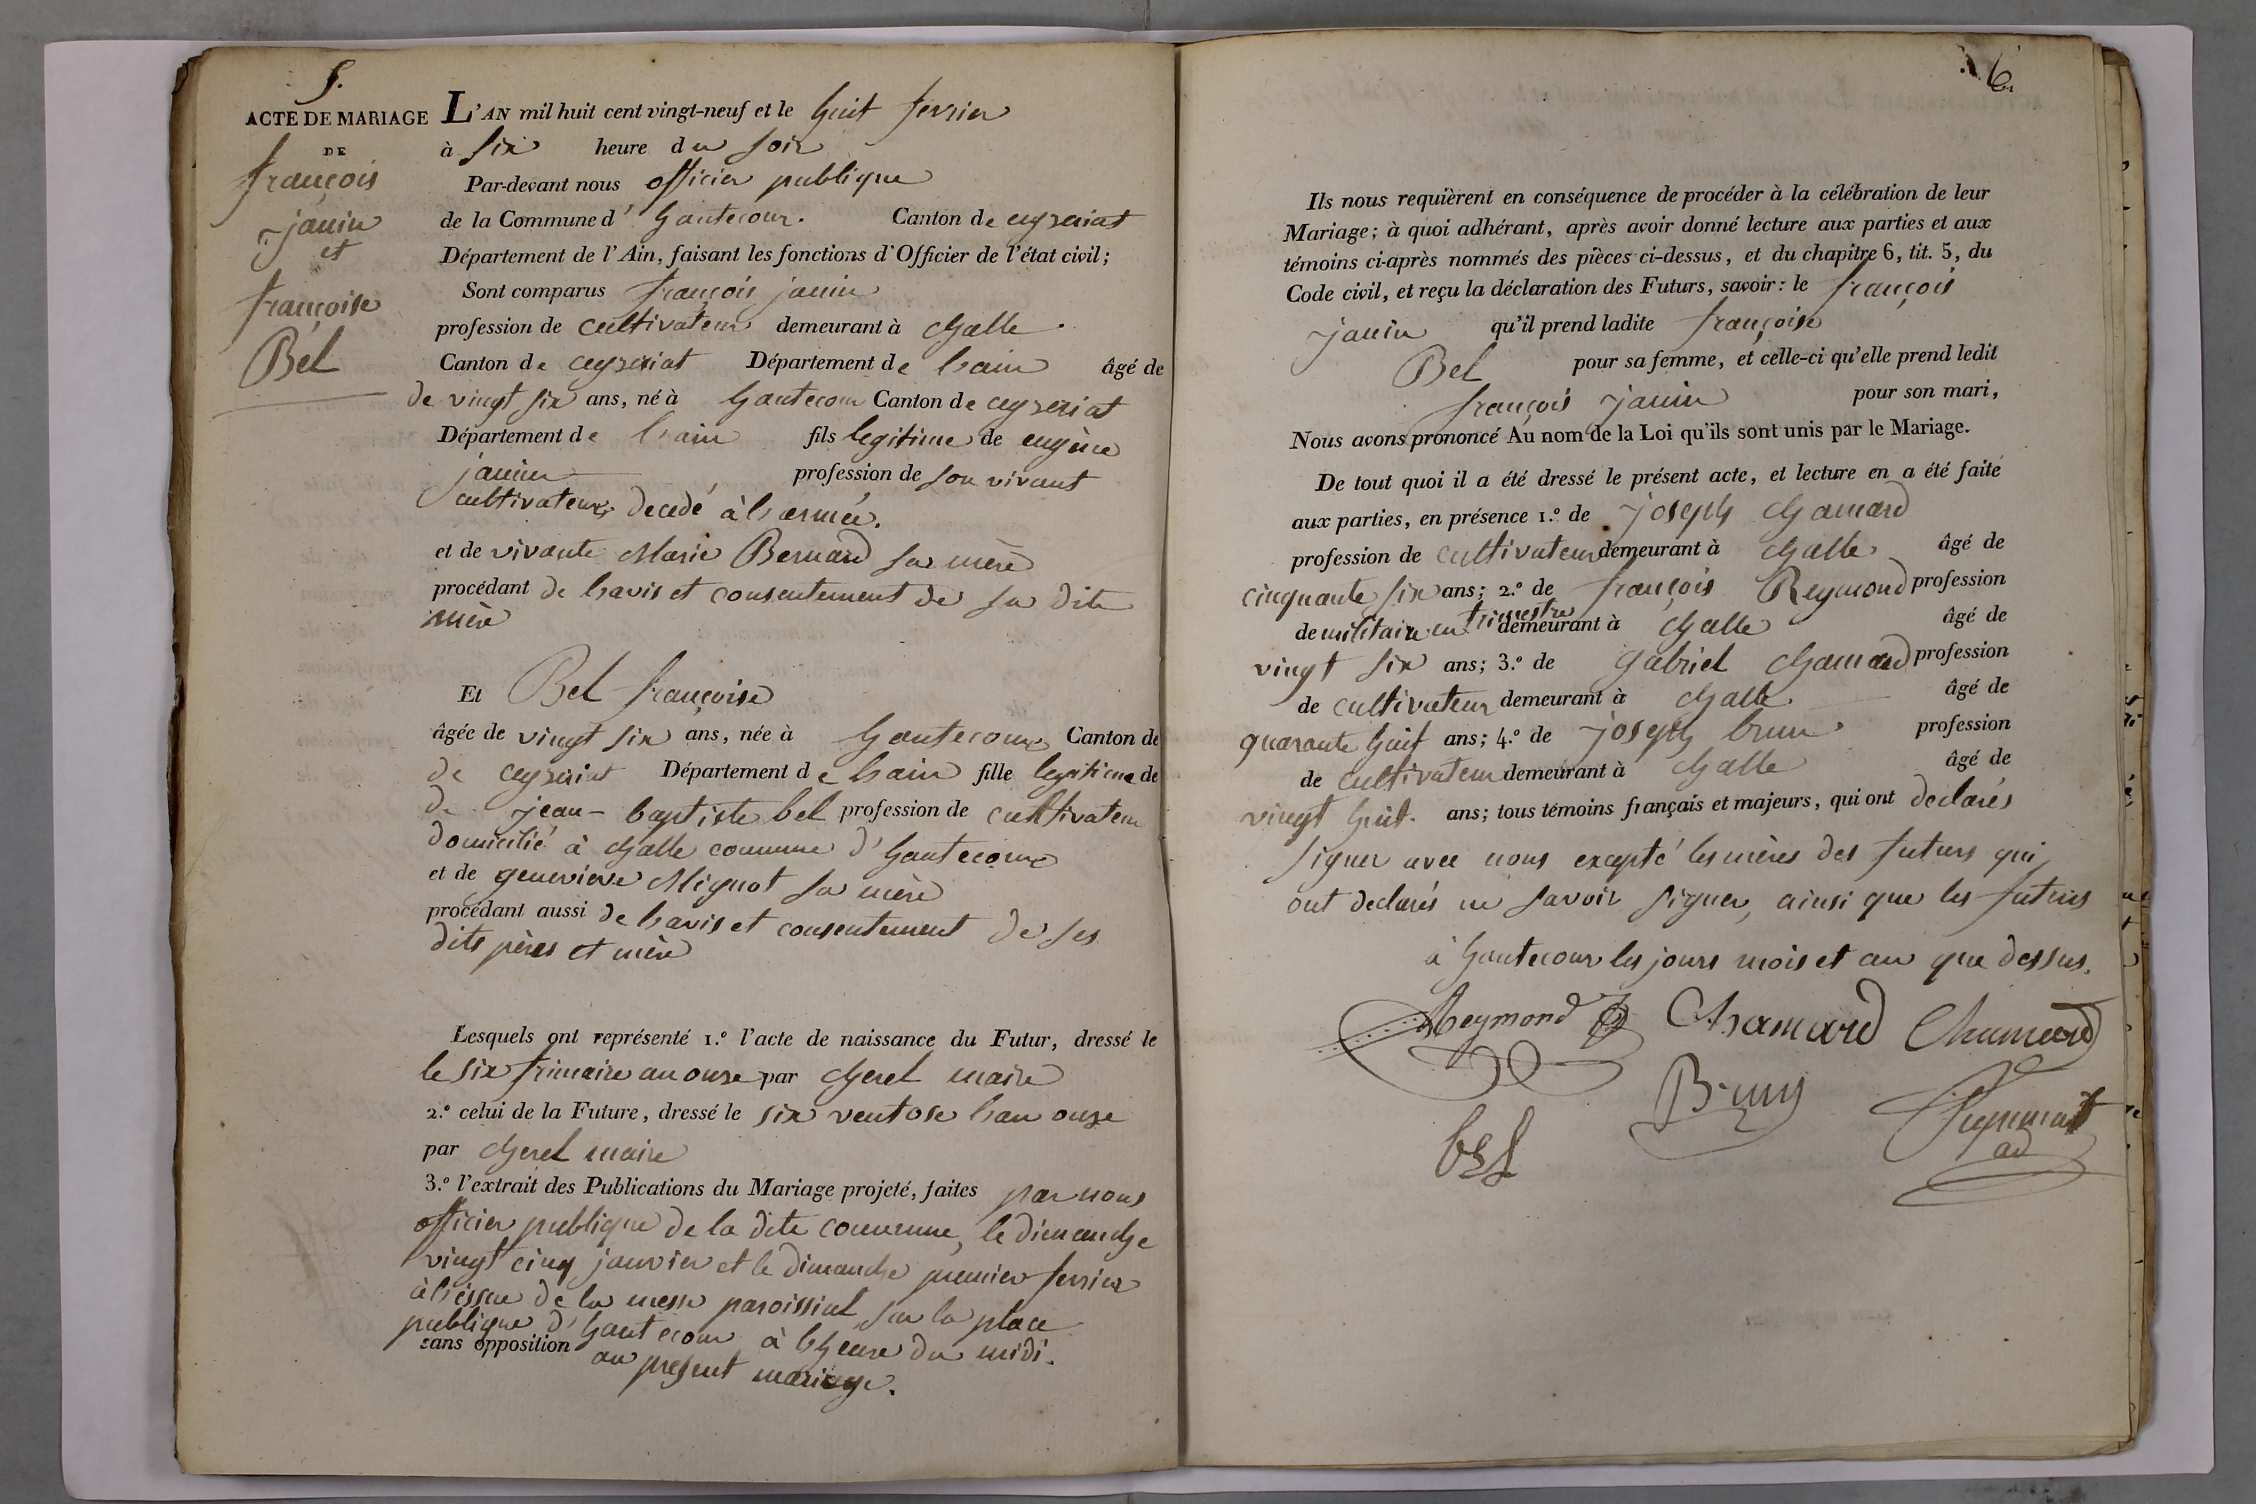 5.
ACTE DE MARIAGE
DE
françois
janin
et
françoise
Bel
L'AN mil huit cent vingt-neuf et le huit fevrier
à six heure du soir
Par-devant nous officier publique
de la Commune d' hautecour. Canton de ceyzeriat
Département de l'Ain, faisant les fonctions d'Officier de l'état civil;
Sont comparus françois janin
profession de cultivateur demeurant à challe
Canton de ceyzeriat Département de lain âgé de
de vingt six ans, né à hautecour Canton de ceyzeriat
Département de lain fils legitime de eugène
janin profession de son vivant
cultivateur decedé à larmée.
et de vivante Marie Bernard sa mère
procédant de lavis et consentement de sa dite
mère
Et Bel françoise
âgée de vingt six ans, née à hautecour Canton de
de ceyzeriat Département de lain fille legitime de
de jean-baptiste bel profession de cultivateur
domicilié à challe commune d'hautecour
et de genevieve Mignot sa mère
procédant aussi de lavis et consentement de ses
dits pères et mère
Lesquels ont représenté 1.º l'acte de naissance du Futur, dressé le
le six frimaire an onze par cheret maire
2.º celui de la Future, dressé le six ventose lan onze
par cheret maire
3.º l'extrait des Publications du Mariage projeté, faites par nous
officier publique de la dite commune, le dimanche
vingt cinq janvier et le dimanche premier fevrier
à lissue de la messe paroissial sur la place
publique d'hautecour à lheure du midi.
sans opposition au present mariage.
6.
Ils nous requièrent en conséquence de procéder à la célébration de leur
Mariage; à quoi adhérant, après avoir donné lecture aux parties et aux
témoins ci-après nommés des pièces ci-dessus, et du chapitre 6, tit. 5, du
Code civil, et reçu la déclaration des Futurs, savoir: le françois
janin qu'il prend ladite françoise
Bel pour sa femme, et celle-ci qu'elle prend ledit
françois janin pour son mari,
Nous avons prononcé Au nom de la Loi qu'ils sont unis par le Mariage.
De tout quoi il a été dressé le présent acte, et lecture en a été faite
aux parties, en présence 1.º de joseph chamard
profession de cultivateur demeurant à challe âgé de
cinquante six ans; 2.º de françois Reymond profession
de militaire en trimestre demeurant à challe âgé de
vingt six ans; 3.º de gabriel chamard profession
de cultivateur demeurant à challe âgé de
quarante huit ans; 4.º de joseph brun profession
de cultivateur demeurant à challe âgé de
vingt huit. ans; tous témoins français et majeurs, qui ont declarés
signer avec nous excepté les mères des futurs qui
ont declarés ne savoir signer, ainsi que les futurs
à hautecour les jours mois et an que dessus.
Reymond Chamard Chamard
Brun
bel
ad